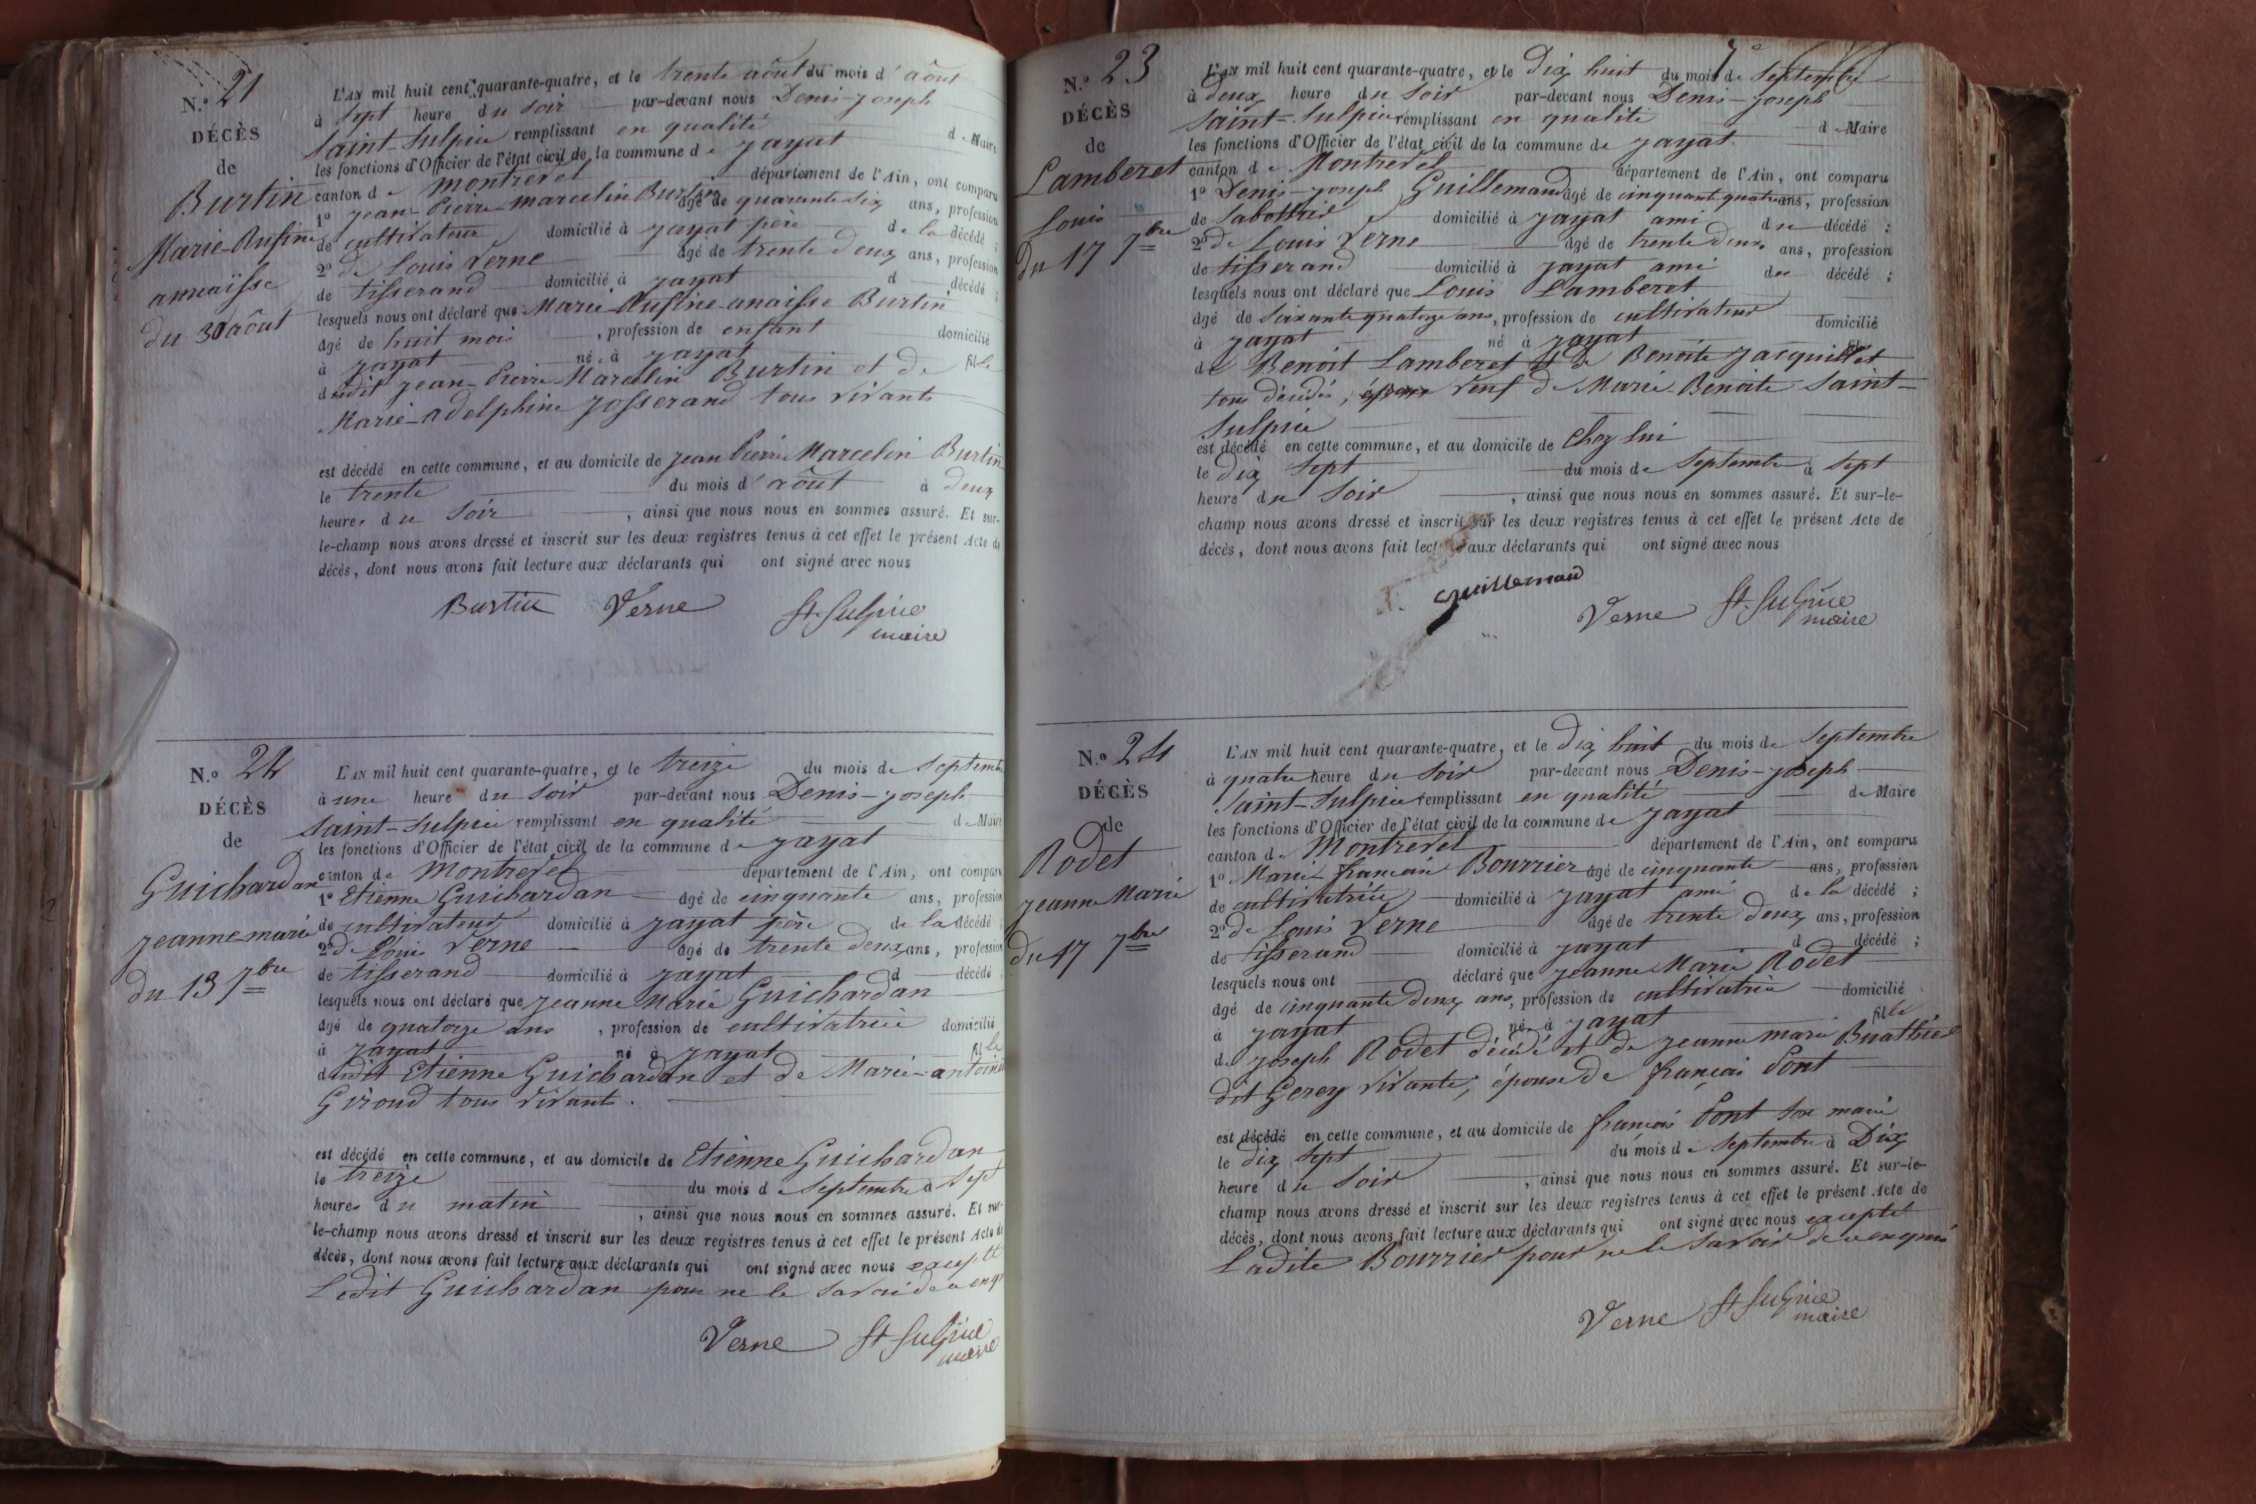 N.º 21
DÉCÈS
de
Burtin
Marie-Rufine
annaïsse
du 30 août
L'AN mil huit cent quarante-quatre, et le trente août du mois d'août
à sept heure du soir par-devant nous Denis-joseph
Saint-Sulpice remplissant en qualité de Maire
les fonctions d'Officier de l'état civil de la commune de jayat
canton de montrevel département de l'Ain, ont comparu
1º jean-Pierre-marcelin Burtin âgé de quarante six ans, profession
de cultivateur domicilié à jayat père de la décédé ;
2º de Louis Verne âgé de trente deux ans, profession
de tisserand domicilié à jayat d décédé ;
lesquels nous ont déclaré que Marie-Rufine-anaisse Burtin
âgé de huit mois , profession de enfant domicilié
à jayat né à jayat fille
dudit jean-Pierre Marcelin Burtin et de
Marie-adelphine josserand tous vivants
est décédé en cette commune, et au domicile de jean Pierre Marcelin Burtin
le trente du mois d'août à deux
heures du soir , ainsi que nous nous en sommes assuré. Et sur-
le-champ nous avons dressé et inscrit sur les deux registres tenus à cet effet le présent Acte de
décès, dont nous avons fait lecture aux déclarants qui ont signé avec nous
Burtin Verne St Sulpice
maire
N.º 22
DÉCÈS
de
Guichardan
jeanne marie
du 13 7bre
L'AN mil huit cent quarante-quatre, et le treize du mois de septembre
à une heure du soir par-devant nous Denis-joseph
Saint-Sulpice remplissant en qualité de Maire
les fonctions d'Officier de l'état civil de la commune de jayat
canton de montrevel département de l'Ain, ont comparu
1º Etienne Guichardan âgé de cinquante ans, profession
de cultivateur domicilié à jayat père de la décédé ;
2º de Louis Verne âgé de trente deux ans, profession
de tisserand domicilié à jayat d décédé
lesquels nous ont déclaré que jeanne Marie Guichardan
âgé de quatorze ans , profession de cultivatrice domicilié
à jayat né à jayat fille
dudit Etienne Guichardan et de Marie-antoine
Giroud tous vivants.
est décédé en cette commune, et au domicile de Etienne Guichardan
le treize du mois de septembre à sept
heures du matin , ainsi que nous nous en sommes assuré. Et sur-
le-champ nous avons dressé et inscrit sur les deux registres tenus à cet effet le présent Acte de
décès, dont nous avons fait lecture aux déclarants qui ont signé avec nous excepté
Ledit Guichardan pour ne le savoir de ce enq
Verne St Sulpice
maire
N.º 23
DÉCÈS
de
Lamberet
Louis
du 17 7bre
L'AN mil huit cent quarante-quatre, et le dix huit du mois de septembre
à deux heure du soir par-devant nous Denis-joseph
Saint-Sulpice remplissant en qualité de Maire
les fonctions d'Officier de l'état civil de la commune de jayat
canton de Montrevel département de l'Ain, ont comparu
1º Denis-joseph Guillemaud âgé de cinquant quatre ans, profession
de Sabottier domicilié à jayat ami du décédé ;
2º de Louis Verne âgé de trente deux ans, profession
de tisserand domicilié à jayat ami du décédé ;
lesquels nous ont déclaré que Louis Lamberet
âgé de soixante quatorze ans, profession de cultivateur domicilié
à jayat né à jayat fils
de Benoit Lamberet et de Benoite jacquillet
tous décédés, époux veuf de Marie Benoite Saint-
Sulpice
est décédé en cette commune, et au domicile de chez lui
le dix sept du mois de septembre à sept
heure du soir , ainsi que nous nous en sommes assuré. Et sur-le-
champ nous avons dressé et inscrit sur les deux registres tenus à cet effet le présent Acte de
décès, dont nous avons fait lecture aux déclarants qui ont signé avec nous
Guillemaud
Verne St Sulpice
maire
N.º 24
DÉCÈS
de
Rodet
jeanne Marie
du 17 7bre
L'AN mil huit cent quarante-quatre, et le dix huit du mois de septembre
à quatre heure du soir par-devant nous Denis-joseph
Saint-Sulpice remplissant en qualité de Maire
les fonctions d'Officier de l'état civil de la commune de jayat
canton de Montrevel département de l'Ain, ont comparu
1º Marie francoise Bourrier âgé de cinquante ans, profession
de cultivatrice domicilié à jayat ami de la décédé ;
2º de Louis Verne âgé de trente deux ans, profession
de tisserand domicilié à jayat d décédé ;
lesquels nous ont déclaré que jeanne Marie Rodet
âgé de cinquante deux ans, profession de cultivatrice domicilié
à jayat né à jayat fille
de joseph Rodet décédé et de jeanne marie Buathier
dit Gerey vivante, épouse de francois Pont
est décédé en cette commune, et au domicile de francois Pont son mari
le dix sept du mois de septembre à Dix
heure du soir , ainsi que nous nous en sommes assuré. Et sur-le-
champ nous avons dressé et inscrit sur les deux registres tenus à cet effet le présent Acte de
décès, dont nous avons fait lecture aux déclarants qui ont signé avec nous excepté
Ladite Bourrier pour ne le savoir de ce enquis
Verne St Sulpice
maire